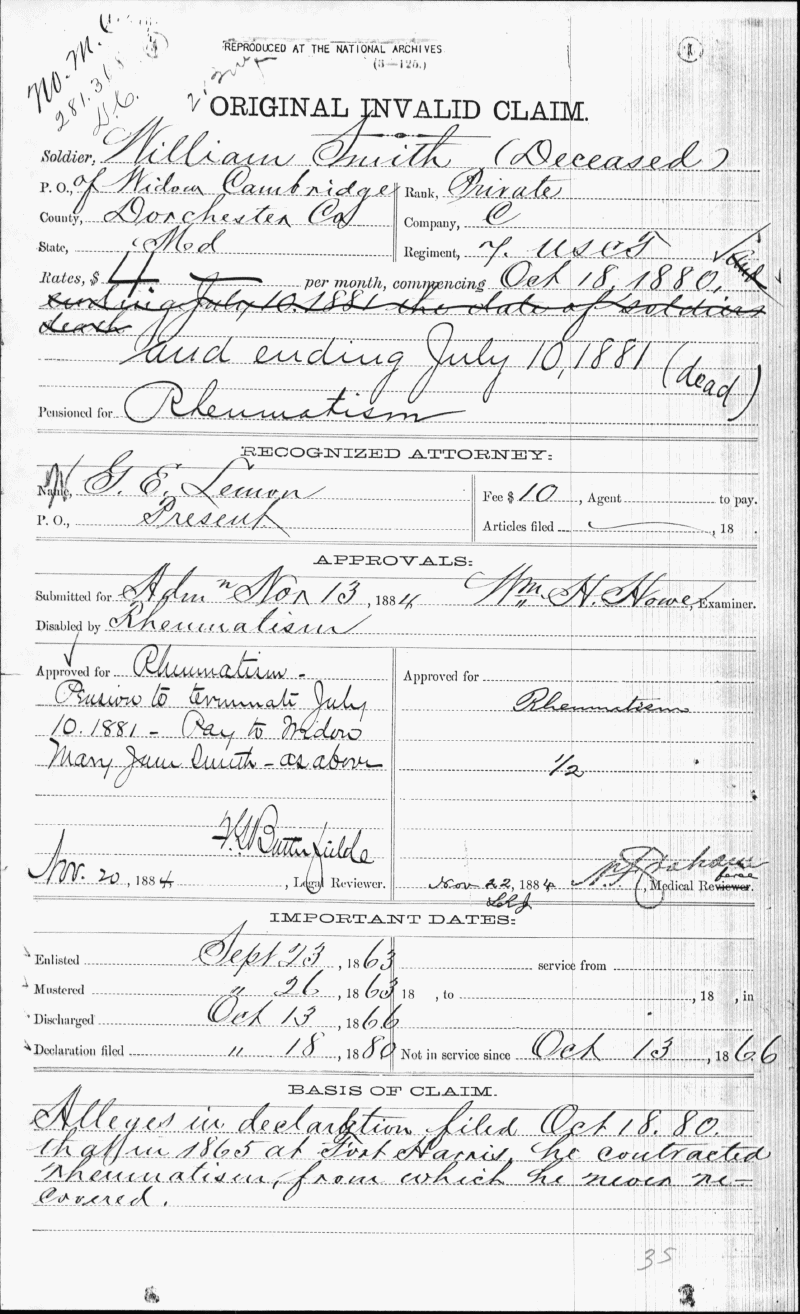 No. M. C.
281.368
D.C.
REPRODUCED AT THE NATIONAL ARCHIVES
(3—125.)
ORIGINAL INVALID CLAIM.
Soldier, William Smith (Deceased)
P. O., of Widow Cambridge
Rank, Private
County, Dorchester Co
Company, C
State, Md
Regiment, 7. USCT
Rates, $ 4 per month, commencing Oct 18, 1880, and
ending July 10. 1881 the date of soldiers
death
and ending July 10, 1881 (dead)
Pensioned for Rheumatism
RECOGNIZED ATTORNEY:
Name, G. E. Lemon
Fee $ 10, Agent to pay.
P. O., Present
Articles filed , 18 .
APPROVALS:
Submitted for Adm n Nov 13, 1884 Wm. H. Howe, Examiner.
Disabled by Rheumatism
Approved for Rheumatism -
Pension to terminate July
10. 1881 - Pay to Widow
Mary Jane Smith - as above
Nov. 20, 1884 , Legal Reviewer.
Approved for
Rheumatism
1/2
Nov 22, 1884 , Medical Reviewer.
IMPORTANT DATES:
Enlisted Sept 23, 1863
service from
Mustered " 26, 1863
18 , to , 18 , in
Discharged Oct 13, 1866
Declaration filed " 18, 1880
Not in service since Oct 13, 1866
BASIS OF CLAIM.
Alleges in declaration filed Oct 18. 80.
that in 1865 at Fort Harris, he contracted
rheumatism, from which he never re-
covered.
35